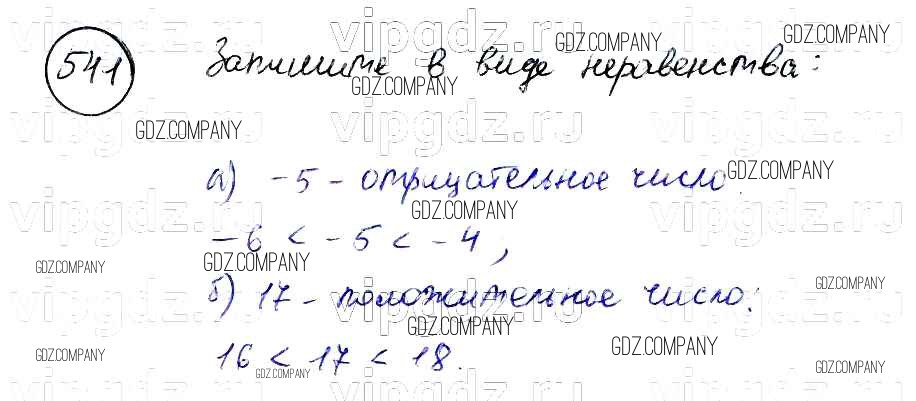 vipgdz.ru vipgdz.ru vipgdz.ru
541 Запишите в виде неравенства:
GDZ.COMPANY GDZ.COMPANY GDZ.COMPANY
vipgdz.ru vipgdz.ru vipgdz.ru
GDZ.COMPANY
а) -5 - отрицательное число.
GDZ.COMPANY GDZ.COMPANY
vipgdz.ru vipgdz.ru vipgdz.ru
-6 < -5 < -4,
GDZ.COMPANY GDZ.COMPANY GDZ.COMPANY
б) 17 - положительное число:
vipgdz.ru vipgdz.ru vipgdz.ru
GDZ.COMPANY GDZ.COMPANY GDZ.COMPANY
16 < 17 < 18.
GDZ.COMPANY GDZ.COMPANY
vipgdz.ru vipgdz.ru vipgdz.ru